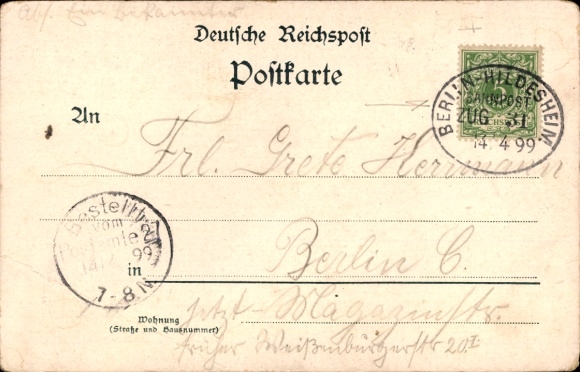 Abs. Ein Bekannter
Deutsche Reichspost
Postkarte
5
BERLIN-HILDESHEIM
BAHNPOST
ZUG 31
14. 4 99
An
Frl. Grete Herrmann
Bestellt
vom
Postamte
14.4. 99
7-8 N
in
Berlin C.
Wohnung
(Straße und Hausnummer)
jetzt - Magazinstr.
früher Weißenburgerstr 20.I